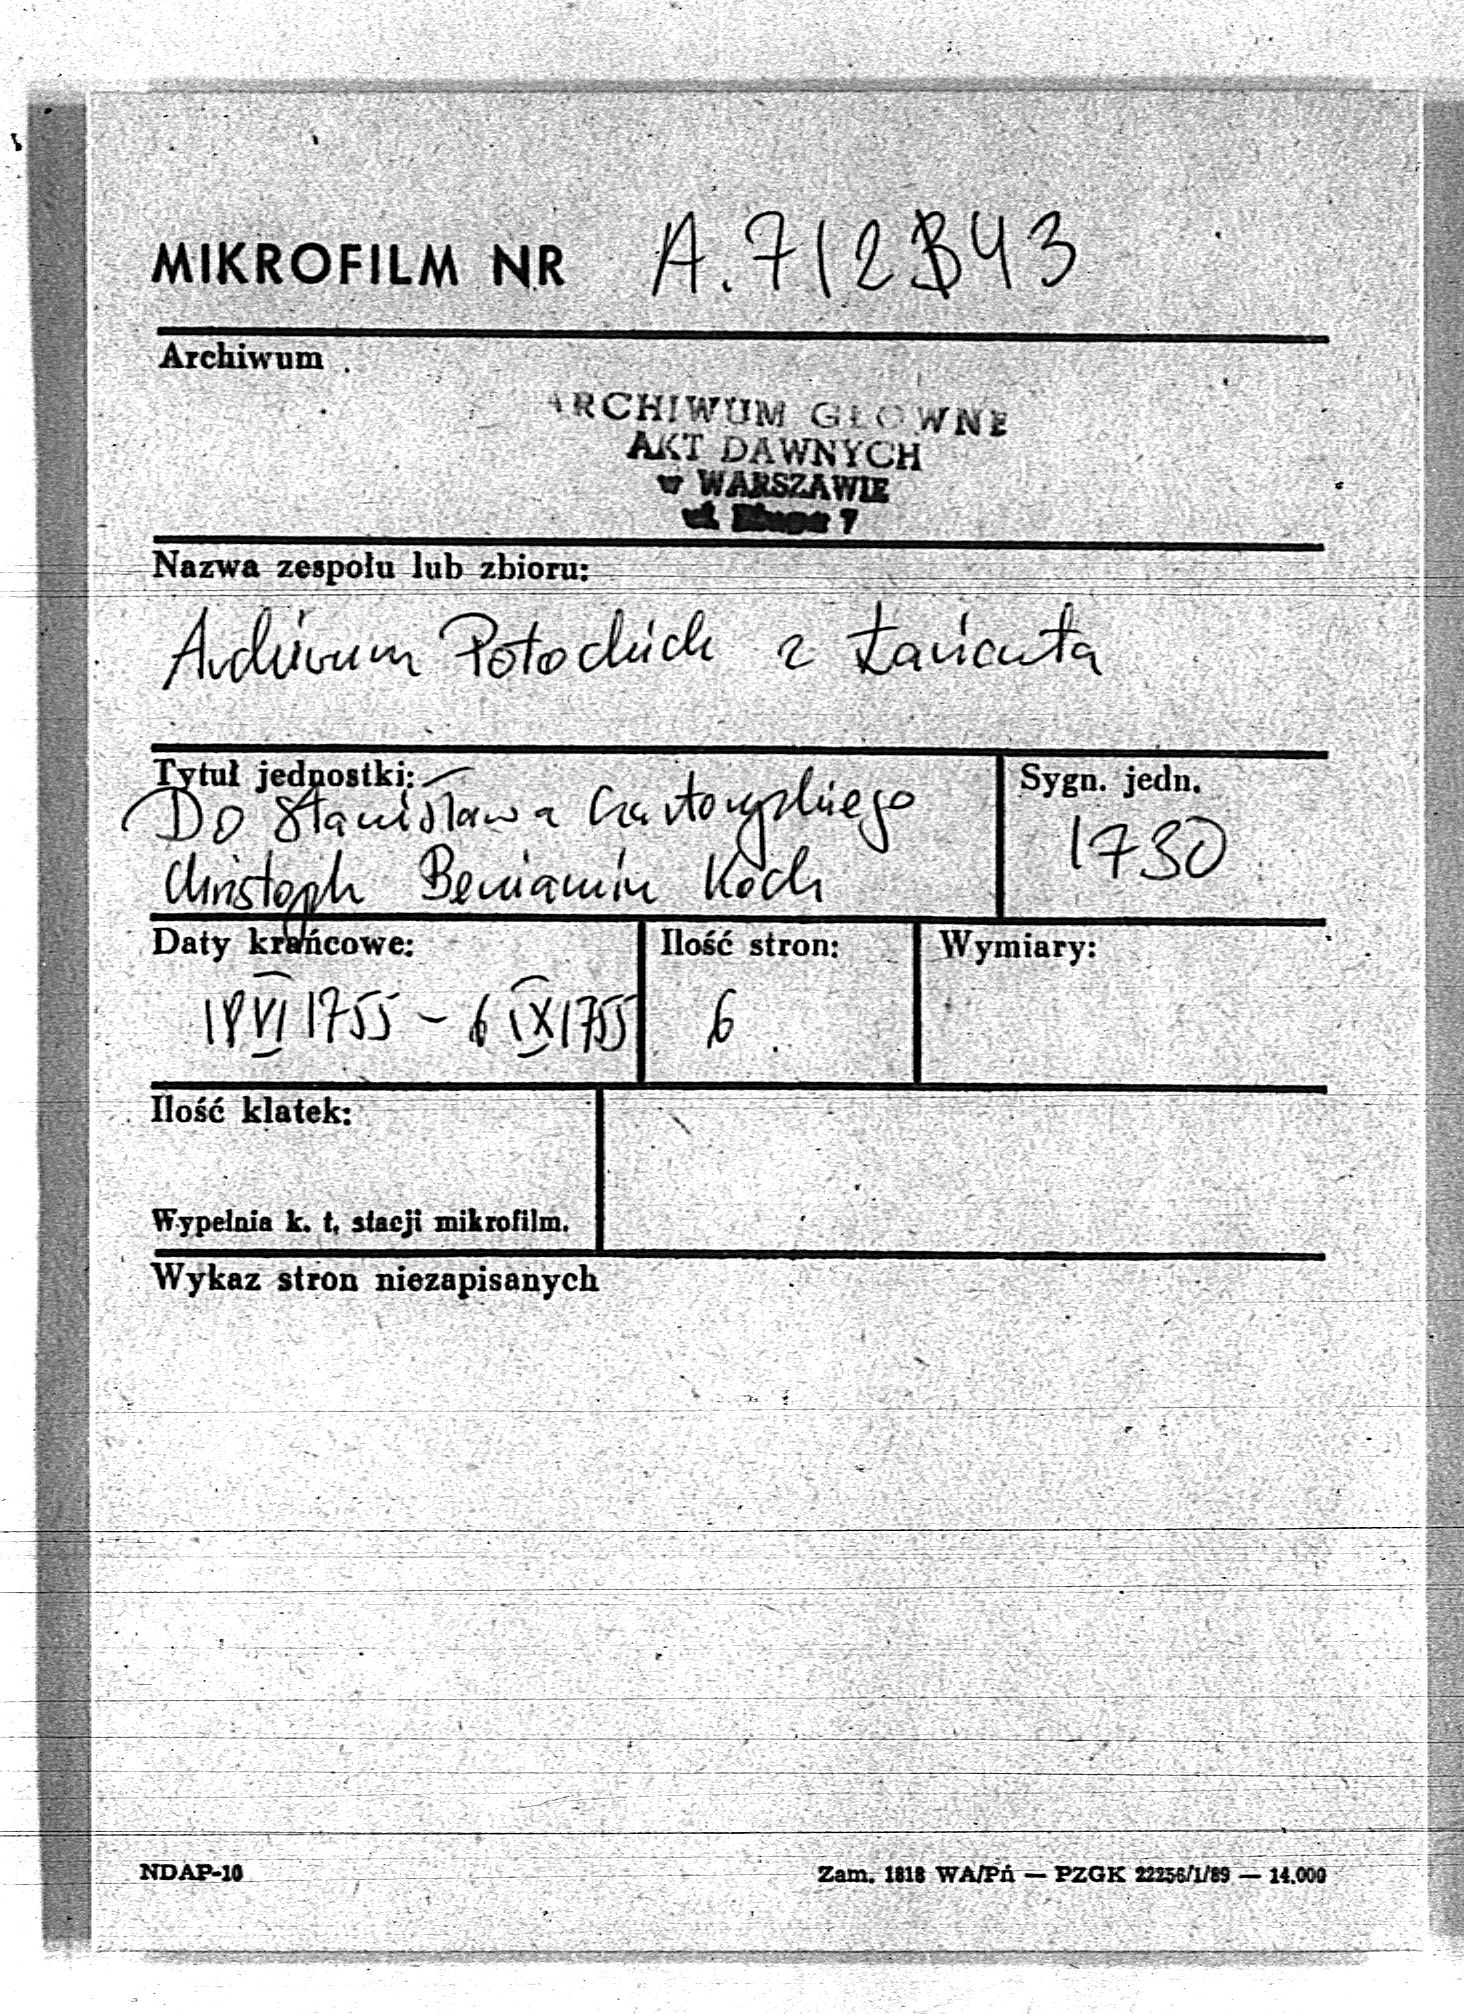 MIKROFILM NR A. 712843
Archiwum
ARCHIWUM GŁOWNE
AKT DAWNYCH
w WARSZAWIE
ul. Długa 7
Nazwa zespołu lub zbioru:
Archiwum Potockich z Łańcuta
Tytuł jednostki:
Do Stanisława Czartoryskiego
Christoph Beniamin Koch
Sygn. jedn.
1730
Daty krańcowe:
VI 1755 – 6 IX 1755
Ilość stron:
6
Wymiary:
Ilość klatek:
Wypełnia k. t. stacji mikrofilm.
Wykaz stron niezapisanych
NDAP-10
Zam. 1818 WA/Pń — PZGK 22256/1/89 — 14.000